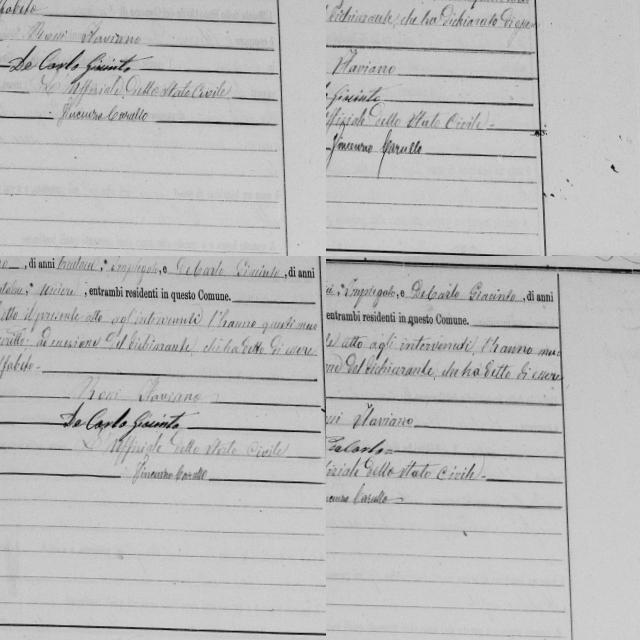 fabeto
Rossi Flaviano
De Carlo Giacinto
L'Uffiziale dello Stato Civile
Vincenzo Carullo
dichiarante, che ha dichiarato di
Flaviano
Giacinto
dello Stato Civile
Vincenzo Carullo
, di anni , Impiegato, e De Carlo Giacinto, di anni
, entrambi residenti in questo Comune.
il presente atto agli intervenuti l'hanno
ad eccezione del dichiarante, che ha detto di essere
fabeto
Rossi Flaviano
De Carlo Giacinto
L'Uffiziale dello Stato Civile
Vincenzo Carullo
Impiegato, e De Carlo Giacinto, di anni
entrambi residenti in questo Comune.
atto agli intervenuti, l'hanno
del dichiarante, che ha detto di essere
Flaviano
De Carlo
dello Stato Civile
Carullo